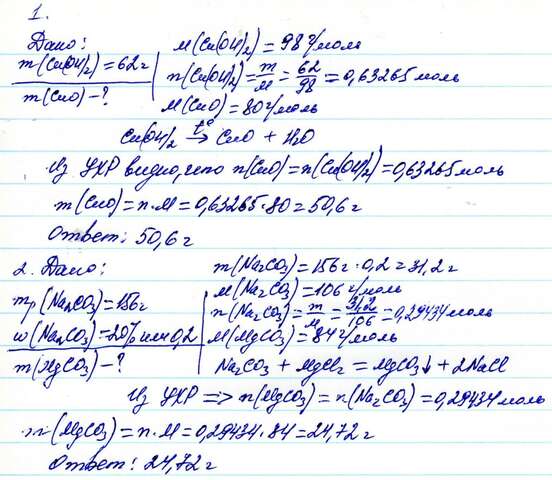 1.
Дано:
m(Cu(OH)2) = 62 г
m(CuO) - ?
M(Cu(OH)2) = 98 г/моль
n(Cu(OH)2) = m/M = 62/98 = 0,63265 моль
M(CuO) = 80 г/моль
Cu(OH)2 t°→ CuO + H2O
Из УХР видно, что n(CuO) = n(Cu(OH)2) = 0,63265 моль
m(CuO) = n · M = 0,63265 · 80 = 50,6 г
Ответ: 50,6 г
2. Дано:
mр(Na2CO3) = 156 г
w(Na2CO3) = 20% или 0,2
m(MgCO3) - ?
m(Na2CO3) = 156 г · 0,2 = 31,2 г
M(Na2CO3) = 106 г/моль
n(Na2CO3) = m/M = 31,2/106 = 0,29434 моль
M(MgCO3) = 84 г/моль
Na2CO3 + MgCl2 = MgCO3↓ + 2NaCl
Из УХР => n(MgCO3) = n(Na2CO3) = 0,29434 моль
m(MgCO3) = n · M = 0,29434 · 84 = 24,72 г
Ответ: 24,72 г